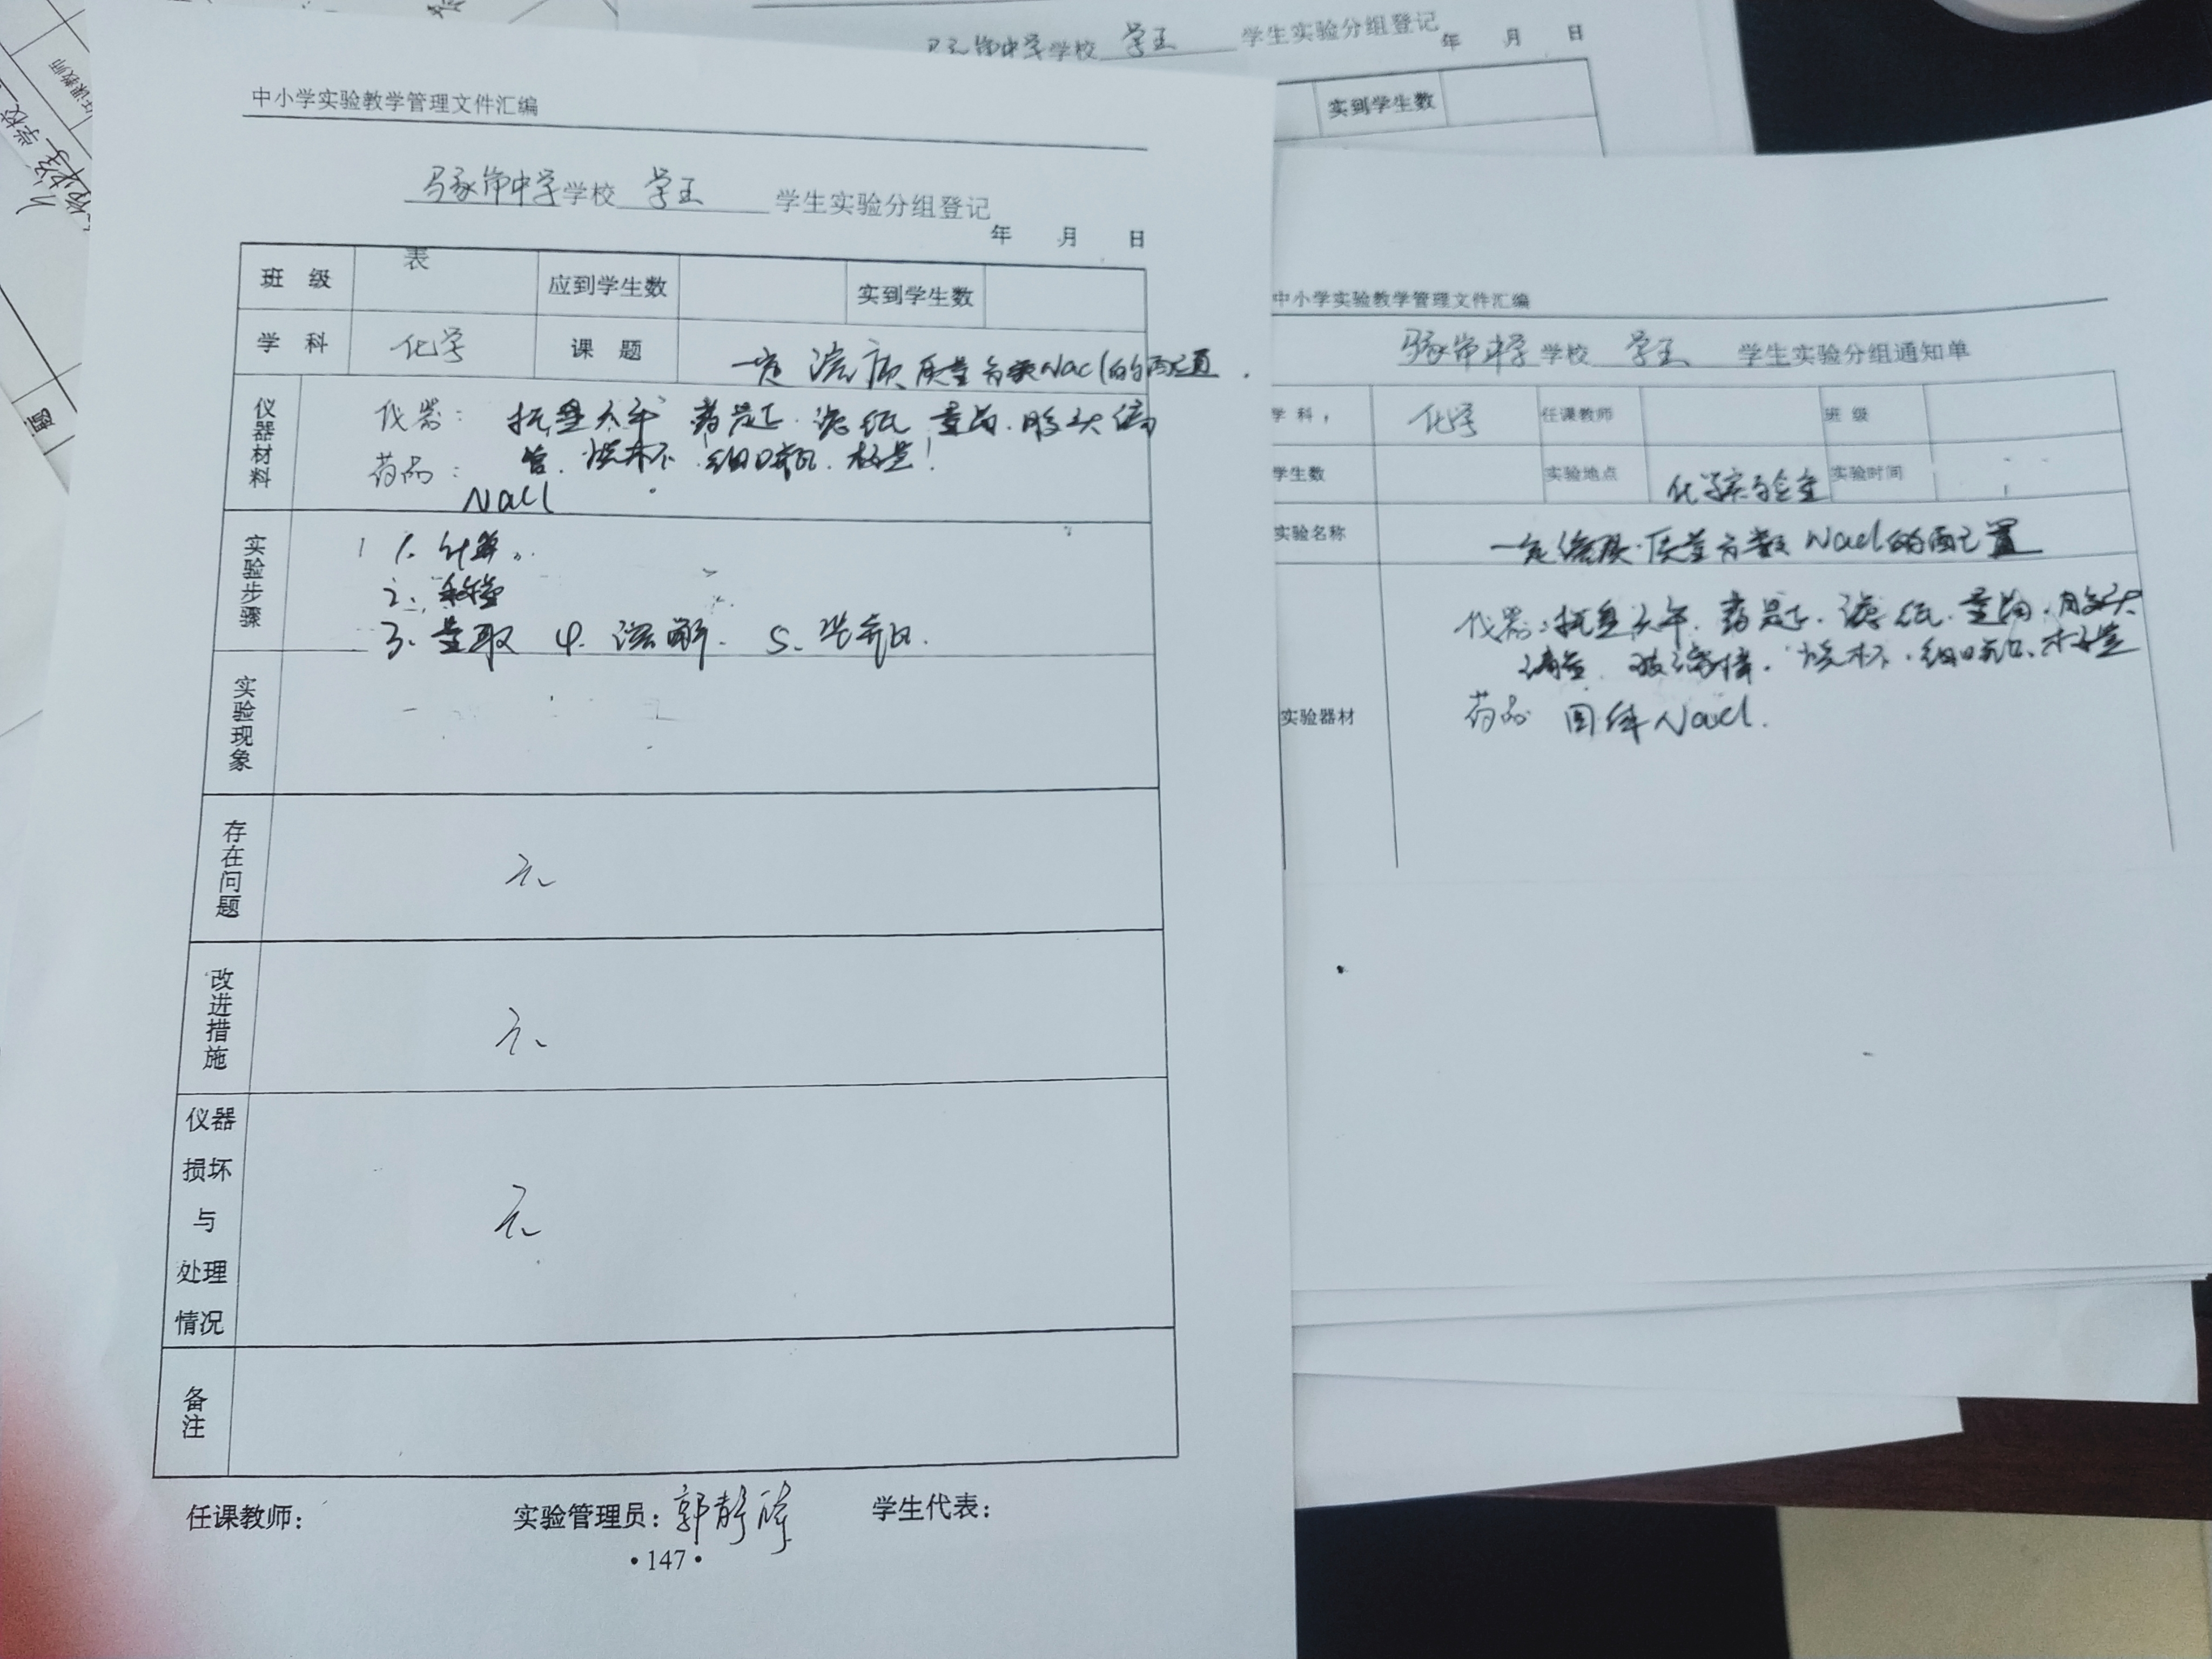 中小学实验教学管理文件汇编
中学学校 学生实验分组登记
年 月 日
表
班 级 应到学生数 实到学生数
学 科 化学 课 题 一定溶质质量分数NaCl的配置.
仪器材料 仪器: 托盘天平 药匙. 滤纸 量筒. 胶头滴
管. 烧杯 细口瓶. 标签!
药品:
NaCl
实验步骤 1 1. 计算.
2. 称量
3. 量取 4. 溶解. 5. 装瓶.
实验现象
存在问题 无
改进措施 无
仪器
损坏
与
处理
情况
无
备注
任课教师: 实验管理员: 学生代表:
•147•
学校 学生实验分组登记
年 月 日
实到学生数
中小学实验教学管理文件汇编
中学学校 学生实验分组通知单
学 科, 化学 任课教师 班 级
学生数 实验地点 化学实验室 实验时间
实验名称 一定溶质质量分数NaCl的配置
实验器材 仪器: 托盘天平. 药匙. 滤纸. 量筒. 胶头
滴管. 玻璃棒. 烧杯. 细口瓶. 标签
药品 固体NaCl.
任课教师
学校
题